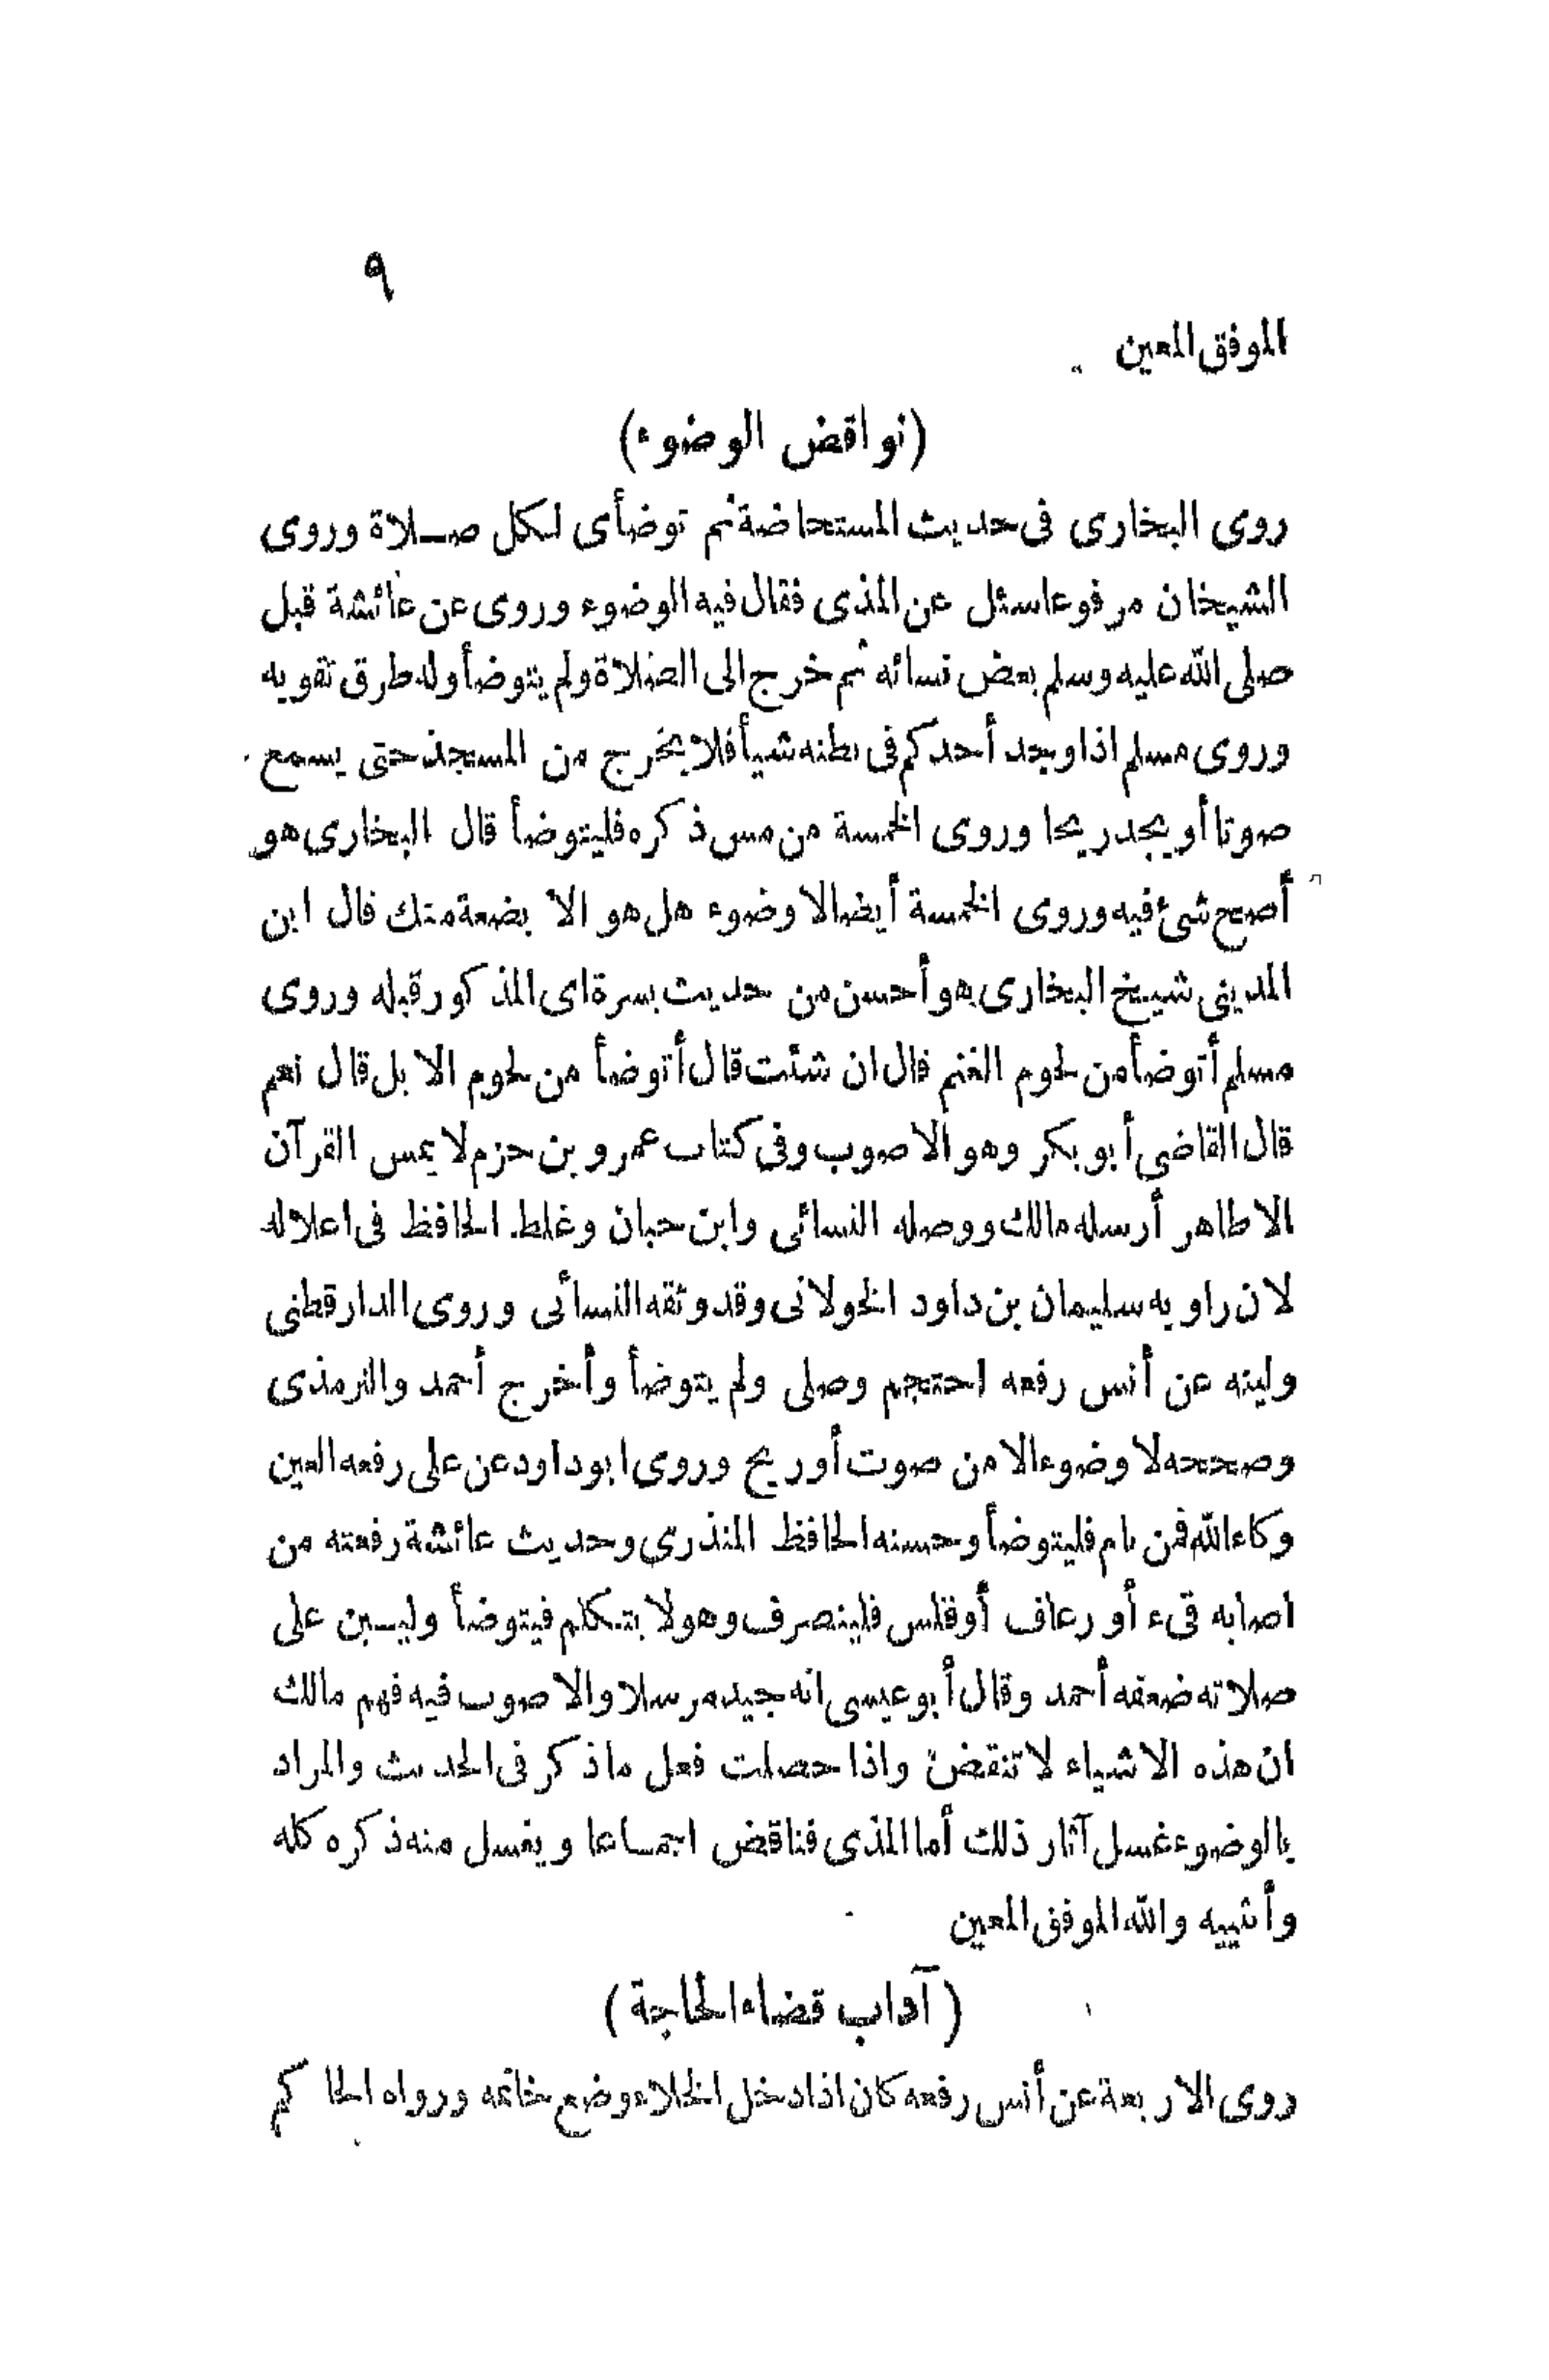 ٩
الموفق المعين
(نواقض الوضوء)
روى البخارى فى حديث المستحاضة ثم توضأى لكل صلاة وروى
الشيخان مرفوعا سئل عن المذى فقال فيه الوضوء وروى عن عائشة قبل
صلى الله عليه وسلم بعض نسائه ثم خرج الى الصلاة ولم يتوضأ وله طرق تقويه
وروى مسلم اذا وجد أحدكم فى بطنه شيأ فلا يخرج من المسجد حتى يسمع
صوتا أو يجد ريحا وروى الخمسة من مس ذكره فليتوضأ قال البخارى هو
أصح شئ فيه وروى الخمسة أيضا لا وضوء هل هو الا بضعة منك قال ابن
المدينى شيخ البخارى هو أحسن من حديث بسرة اى المذكور قبله وروى
مسلم أتوضأ من لحوم الغنم قال ان شئت قال أتوضأ من لحوم الابل قال نعم
قال القاضى أبو بكر وهو الاصوب وفى كتاب عمرو بن حزم لا يمس القرآن
الا طاهر أرسله مالك ووصله النسائى وابن حبان وغلط الحافظ فى اعلاله
لان راويه سليمان بن داود الخولانى وقد وثقه النسائى وروى الدارقطنى
ولينه عن أنس رفعه احتجم وصلى ولم يتوضأ وأخرج أحمد والترمذى
وصححه لا وضوء الا من صوت أو ريح وروى ابو داود عن على رفعه العين
وكاء الله فمن نام فليتوضأ وحسنه الحافظ المنذرى وحديث عائشة رفعته من
اصابه قىء أو رعاف أو قلس فلينصرف وهو لا يتكلم فيتوضأ وليبن على
صلاته ضعفه أحمد وقال أبو عيسى انه جيد مرسلا والاصوب فيه فهم مالك
ان هذه الاشياء لا تنقض واذا حصلت فعل ما ذكر فى الحديث والمراد
بالوضوء غسل آثار ذلك أما المذى فناقض اجماعا ويغسل منه ذكره كله
وأنثييه والله الموفق المعين
(آداب قضاء الحاجة)
روى الاربعة عن أنس رفعه كان اذا دخل الخلاء وضع خاتمه ورواه الحاكم